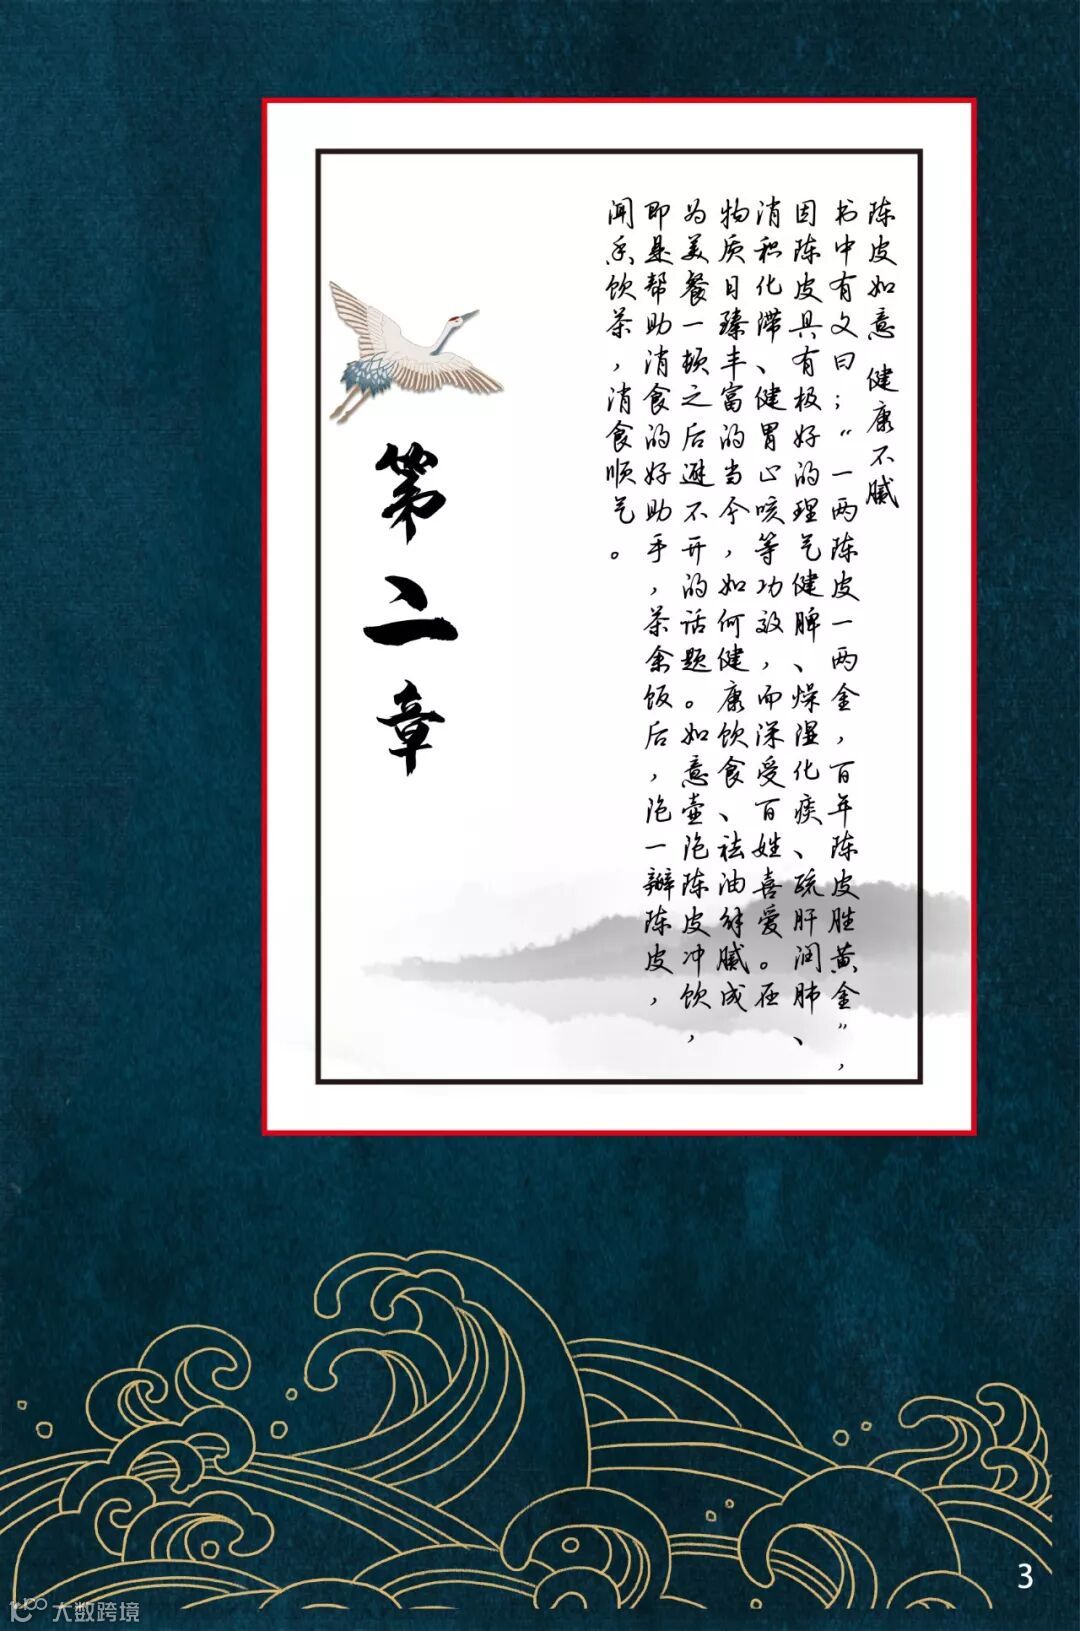 陈皮如意 健康不腻
书中有文曰；“一两陈皮一两金，百年陈皮胜黄金”，
因陈皮具有极好的理气健脾、燥湿化痰、疏肝润肺、
消积化滞、健胃止咳等功效，而深受百姓喜爱。在
物质日臻丰富的当今，如何健康饮食、祛油解腻成
为美餐一顿之后避不开的话题。如意壶泡陈皮冲饮，
即是帮助消食的好助手，茶余饭后，泡一瓣陈皮，
闻香饮茶，消食顺气。
第二章
3
大数跨境